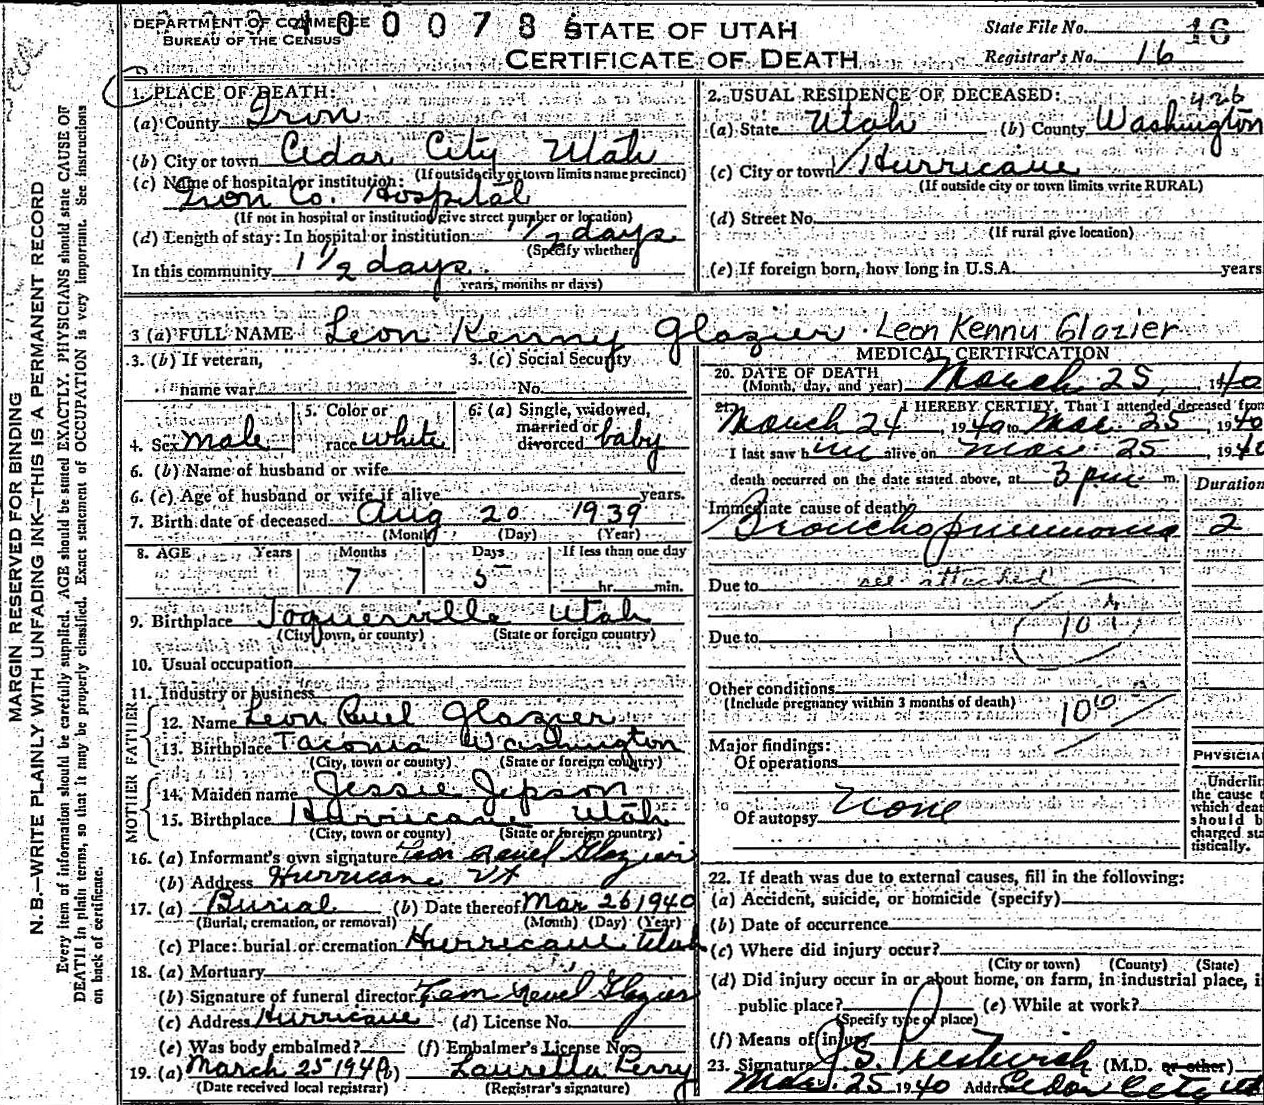 DEPARTMENT OF COMMERCE
BUREAU OF THE CENSUS
STATE OF UTAH
CERTIFICATE OF DEATH
State File No. 16
Registrar's No. 16
MARGIN RESERVED FOR BINDING
N. B.—WRITE PLAINLY WITH UNFADING INK—THIS IS A PERMANENT RECORD
Every item of information should be carefully supplied. AGE should be stated EXACTLY. PHYSICIANS should state CAUSE OF
DEATH in plain terms, so that it may be properly classified. Exact statement of OCCUPATION is very important. See instructions
on back of certificate.
1. PLACE OF DEATH:
(a) County Iron
(b) City or town Cedar City Utah
(If outside city or town limits name precinct)
(c) Name of hospital or institution:
Iron Co. Hospital
(If not in hospital or institution give street number or location)
(d) Length of stay: In hospital or institution 1 1/2 days
(Specify whether
In this community 1 1/2 days.
years, months or days)
2. USUAL RESIDENCE OF DECEASED: 426
(a) State Utah (b) County Washington
(c) City or town Hurricane
(If outside city or town limits write RURAL)
(d) Street No.
(If rural give location)
(e) If foreign born, how long in U.S.A. years
3 (a) FULL NAME Leon Kenny Glazier Leon Kenny Glazier
3. (b) If veteran,
name war
3. (c) Social Security
No.
4. Sex male
5. Color or
race white
6. (a) Single, widowed,
married or
divorced baby
6. (b) Name of husband or wife
6. (c) Age of husband or wife if alive years.
7. Birth date of deceased Aug 20 1939
(Month) (Day) (Year)
8. AGE Years Months Days If less than one day
7 5 hr. min.
9. Birthplace Toquerville Utah
(City, town, or county) (State or foreign country)
10. Usual occupation
11. Industry or business
FATHER
12. Name Leon Ruel Glazier
13. Birthplace Tacoma Washington
(City, town, or county) (State or foreign country)
MOTHER
14. Maiden name Jessie Jepson
15. Birthplace Hurricane Utah
(City, town or county) (State or foreign country)
16. (a) Informant's own signature Glazier
(b) Address Hurricane
17. (a) Burial (b) Date thereof Mar 26 1940
(Burial, cremation, or removal) (Month) (Day) (Year)
(c) Place: burial or cremation Hurricane Utah
18. (a) Mortuary
(b) Signature of funeral director Glazier
(c) Address Hurricane (d) License No.
(e) Was body embalmed? (f) Embalmer's License No.
19. (a) March 25 1940 (b) Lauretta Perry
(Date received local registrar) (Registrar's signature)
MEDICAL CERTIFICATION
20. DATE OF DEATH
(Month, day, and year) March 25, 1940
21. I HEREBY CERTIFY, That I attended deceased from
March 24, 1940 to Mar. 25, 1940
I last saw him alive on Mar. 25, 1940
death occurred on the date stated above, at 3 pm. m.
Duration
Immediate cause of death
Bronchopneumonia 2
Due to see attached
Due to
Other conditions
(Include pregnancy within 3 months of death)
Major findings:
Of operations
Of autopsy None
PHYSICIA
Underlin
the cause t
which deat
should b
charged sta
tistically.
22. If death was due to external causes, fill in the following:
(a) Accident, suicide, or homicide (specify)
(b) Date of occurrence
(c) Where did injury occur?
(City or town) (County) (State)
(d) Did injury occur in or about home, on farm, in industrial place, i
public place? (e) While at work?
(Specify type of place)
(f) Means of injury
23. Signature J. S. Prestwich (M.D. or other)
Mar. 25 1940 Address Cedar City Ut